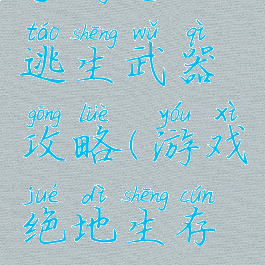 táo shēng wǔ qì
逃生武器
gōng lüè yóu xì
攻略(游戏
jué dì shēng cún
绝地生存